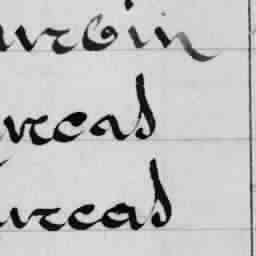 urbin
urcas
urcas